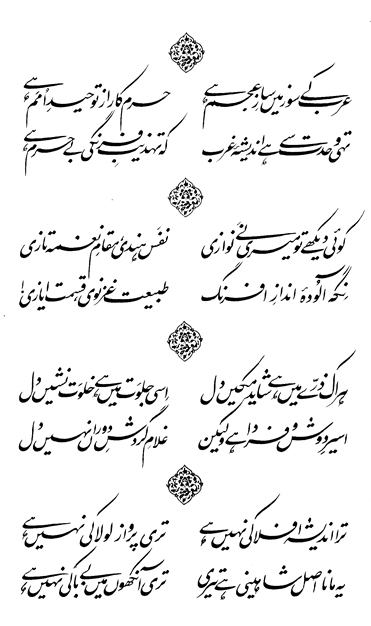 عرب کے سوز میں سازِ عجم ہے حرم کا راز توحیدِ اُمم ہے
تہی وحدت سے ہے اندیشۂ غرب کہ تہذیبِ فرنگی بے حرم ہے
کوئی دیکھے تو میری نَے نوازی نفَس ہندی مقامِ نغمہ تازی
نِگہ آلودۂ اندازِ افرنگ طبیعت غزنوی قسمت ایازی!
ہر اک ذرّے میں ہے شاید مکیں دِل اِسی جلوَت میں ہے خلوَت نشیں دِل
اسیرِ دوش و فردا ہے و لیکن غلامِ گردشِ دوراں نہیں دِل
ترا اندیشہ افلاکی نہیں ہے تری پرواز لولاکی نہیں ہے
یہ مانا اصل شاہینی ہے تیری تری آنکھوں میں بے باکی نہیں ہے